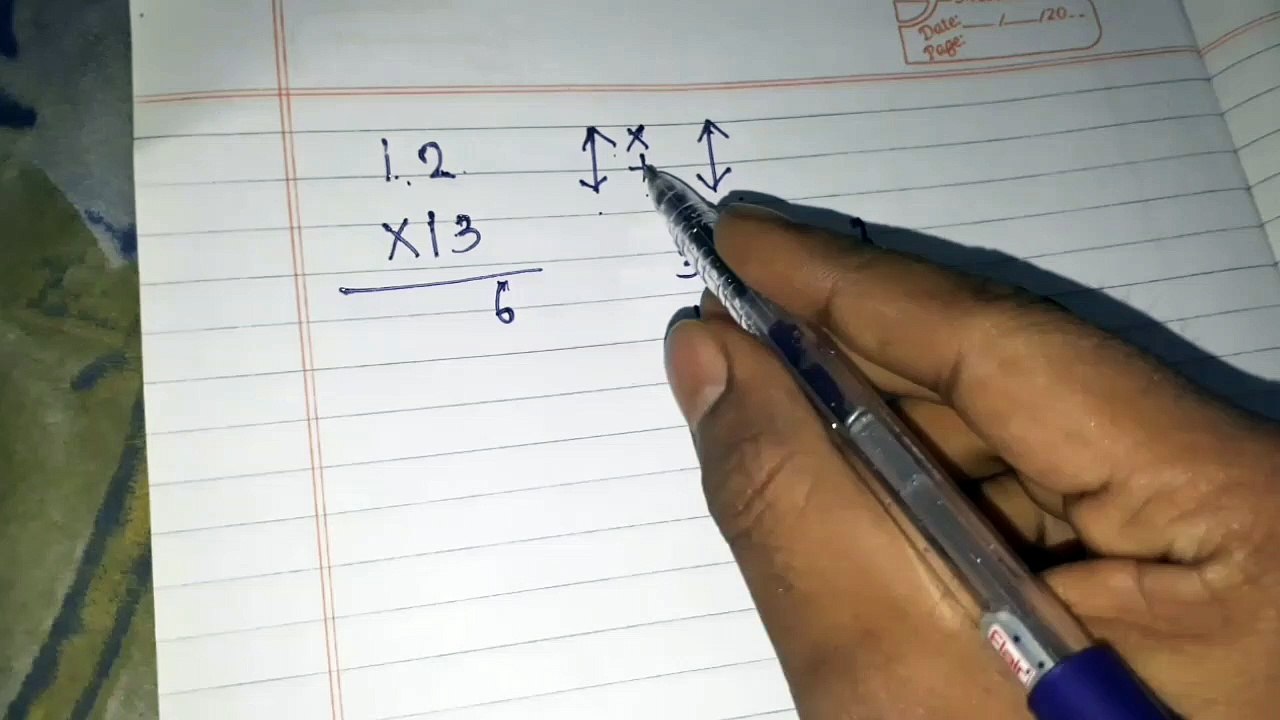 Date: __/__/20..
Page:
1.2 ↕ × ↕
+
×13
6
Elair